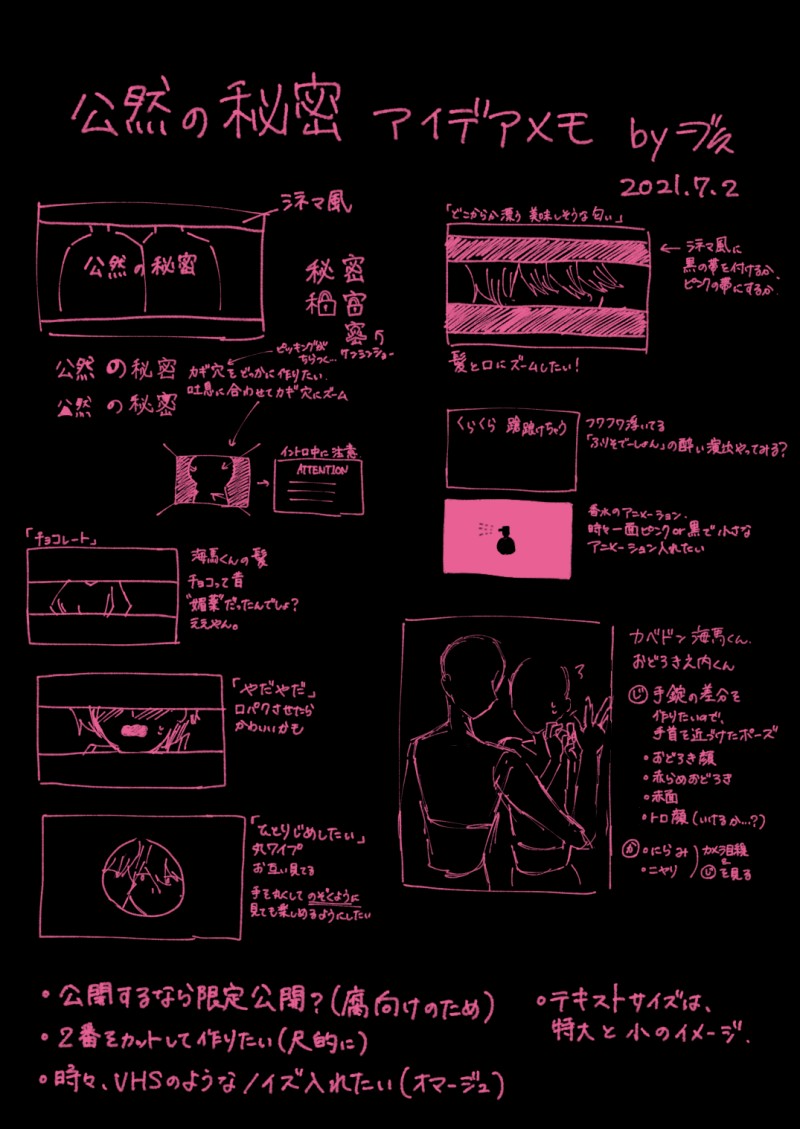 公然の秘密 アイデアメモ by
2021.7.2
シネマ風
公然の秘密
秘密
秘密
密
ケンランショー
ピッキングが
ちらつく…
公然の秘密
公然の秘密
カギ穴をどっかに作りたい。
吐息に合わせてカギ穴にズーム
イントロ中に注意
ATTENTION
「チョコレート」
海馬くんの髪
チョコって昔
"媚薬"だったんでしょ?
ええやん。
「やだやだ」
口パクさせたら
かわいいかも
「ひとりじめしたい」
丸ワイプ
お互い見てる
手を丸くしてのぞくように
見ても楽しめるようにしたい
「どこからか漂う 美味しそうな匂い」
シネマ風に
黒の帯を付けるか、
ピンクの帯にするか.
髪と口にズームしたい!
くらくら 蹌踉けちゃう
フワフワ浮いてる
「ふりそでーしょん」の酔い演出やってみる?
香水のアニメーション.
時々一面ピンクor黒で小さな
アニメーション入れたい
カベドン海馬くん.
おどろき之内くん
じ 手錠の差分を
作りたいので、
手首を近づけたポーズ
・おどろき顔
・赤らめおどろき
・赤面
・トロ顔(いけるか…?)
か ・にらみ
・ニヤリ
カメラ目線
と
じを見る
・公開するなら限定公開?(腐向けのため)
・2番をカットして作りたい(尺的に)
・時々、VHSのようなノイズ入れたい(オマージュ)
・テキストサイズは、
特大と小のイメージ.